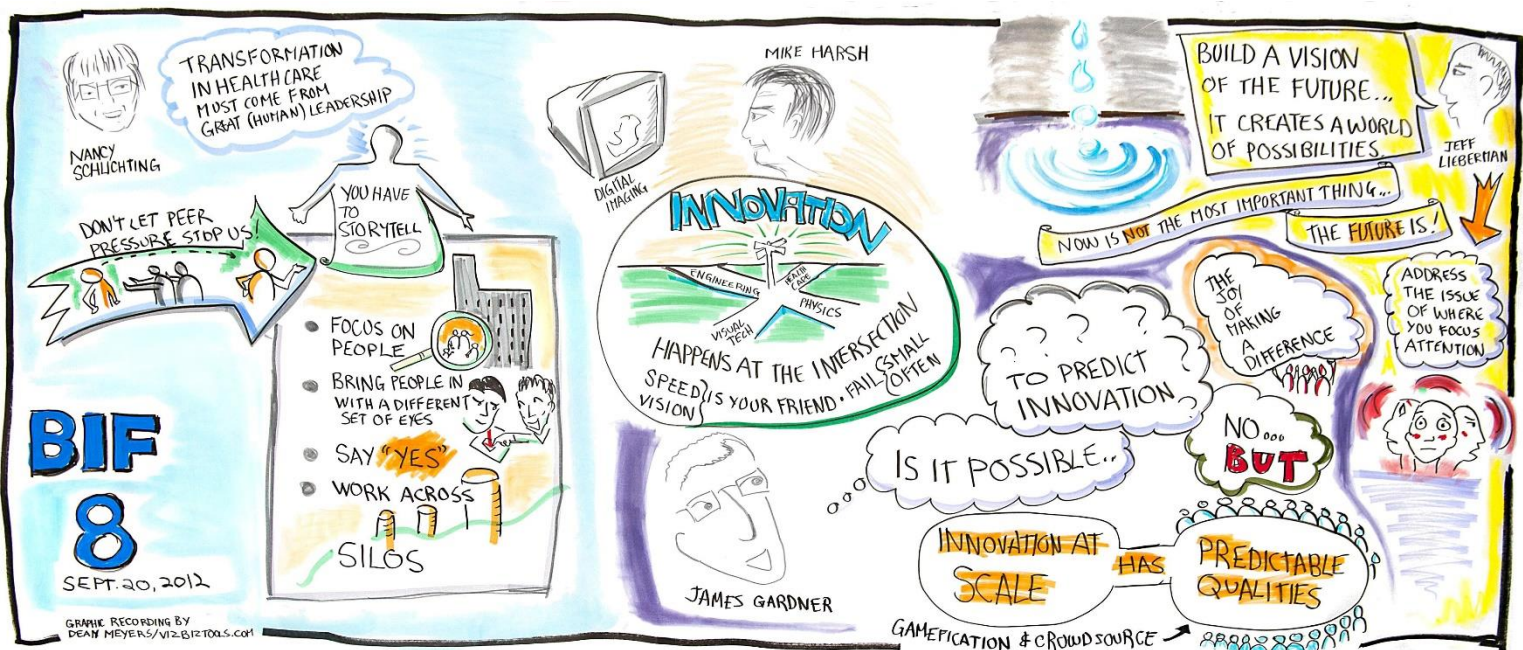 NANCY
SCHLICHTING
TRANSFORMATION
IN HEALTH CARE
MUST COME FROM
GREAT (HUMAN) LEADERSHIP
YOU HAVE
TO
STORYTELL
DON'T LET PEER
PRESSURE STOP US!
FOCUS ON
PEOPLE
BRING PEOPLE IN
WITH A DIFFERENT
SET OF EYES
SAY "YES"
WORK ACROSS
SILOS
BIF
8
SEPT. 20, 2012
GRAPHIC RECORDING BY
DEAN MEYERS/VIZBIZTOOLS.COM
MIKE HARSH
DIGITAL
IMAGING
INNOVATION
ENGINEERING
HEALTH
CARE
VISUAL
TECH
PHYSICS
HAPPENS AT THE INTERSECTION
SPEED
VISION
IS YOUR FRIEND. FAIL
SMALL
OFTEN
JAMES GARDNER
IS IT POSSIBLE..
? ? ? ? ?
TO PREDICT
INNOVATION
NO...
BUT
INNOVATION AT
SCALE
HAS
PREDICTABLE
QUALITIES
GAMEFICATION & CROWDSOURCE
THE
JOY
OF
MAKING
A
DIFFERENCE
BUILD A VISION
OF THE FUTURE...
IT CREATES A WORLD
OF POSSIBILITIES
JEFF
LIEBERMAN
NOW IS NOT THE MOST IMPORTANT THING...
THE FUTURE IS!
ADDRESS
THE ISSUE
OF WHERE
YOU FOCUS
ATTENTION